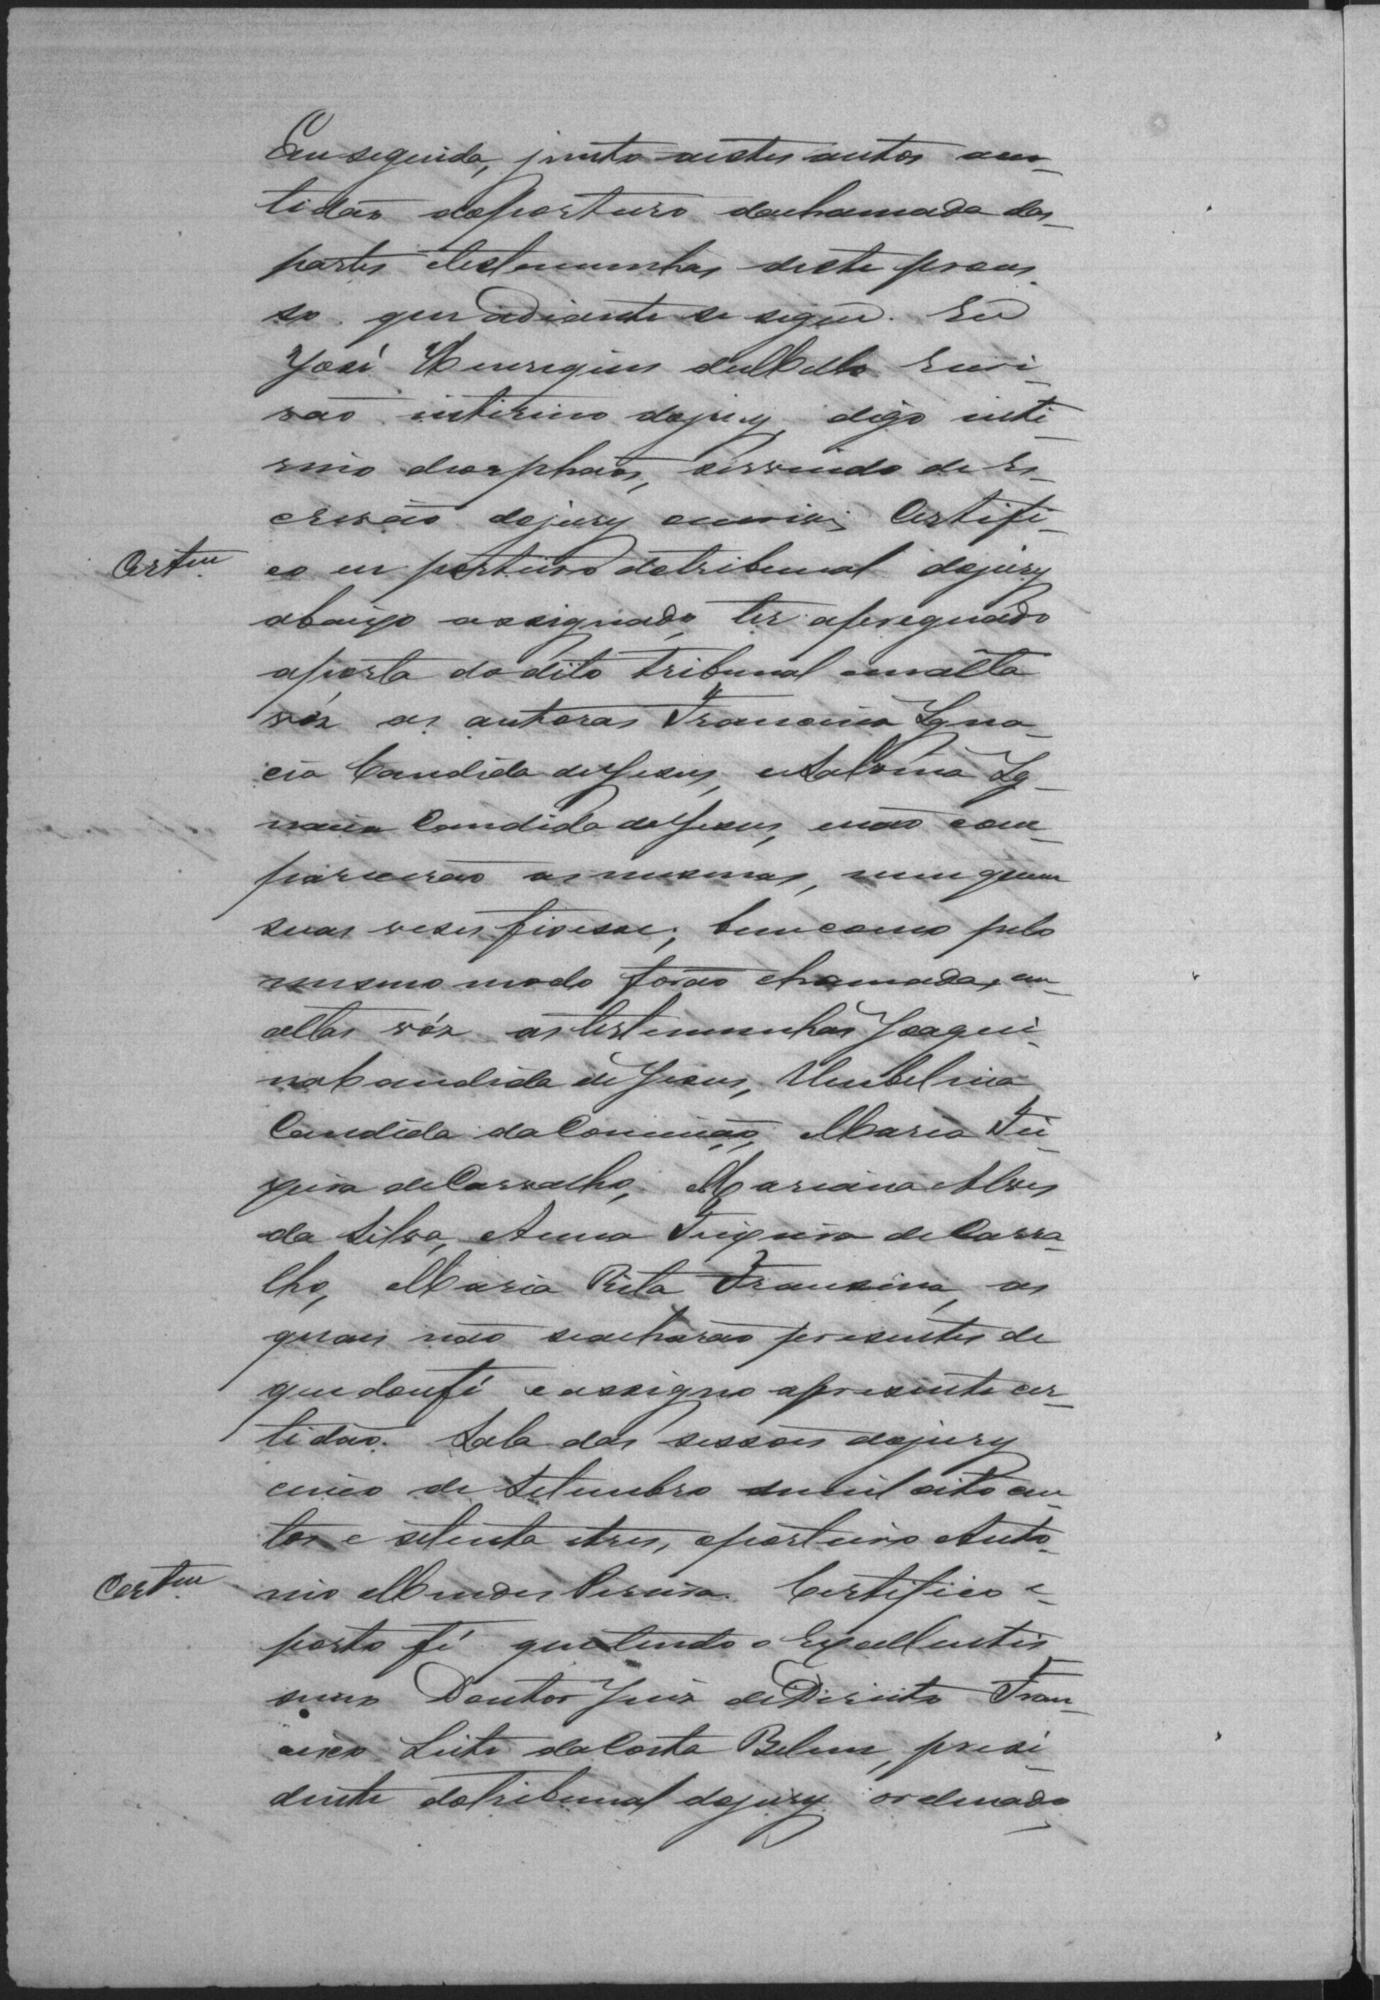 Em seguida, junto a estes autos cer-
tidão do porteiro da chamada das
partes e testemunhas deste proces
so que adiante se segue. Eu
José Henriques de Mello Escri-
vão interino do jury, digo inte-
rino de orphãos, servindo de Es-
crivão do jury escrivi. Certifi-
Certam co eu porteiro do tribunal do jury
abaixo assignado, ter apregoado
a porta do dito tribunal em alta
vóz as autoras Francisca Igna-
cia Candida de Jesus, e Salvina Ig-
nacia Candida de Jesus, e não com-
parecerão as mesmas, nem quem
suas veses fisesse; bem como pelo
mesmo modo forão chamadas em
altas vóz as testemunhas Joaqui-
na Candida de Jesus, Umbelina
Candida da Conceição, Maria Tei-
xeira de Carvalho, Mariana Alves
da Silva, Anna Teixeira de Carva-
lho, Maria Rita Francina, as
quais não se acharão presentes de
que dou fé e assigno a presente cer-
tidão. Sala das sessões do jury
cinco de Setembro de mil oito cen-
tos e setenta e tres, o porteiro Anto-
Certam nio Mendes Pereira. Certifico e
porto fé que tendo o Excellentis
simo Doutor Juiz de Direito Fran-
cisco Leite da Costa Belem, presi-
dente do tribunal do jury ordenado